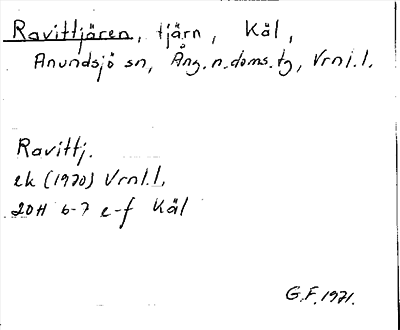 Ravittjären, tjärn, Käl,
Anundsjö sn, Ång.n.doms.tg, Vrnl.l.
Ravittj.
ek (1970) Vrnl.l.
20H 6-7 e-f Käl
G.F. 1971.